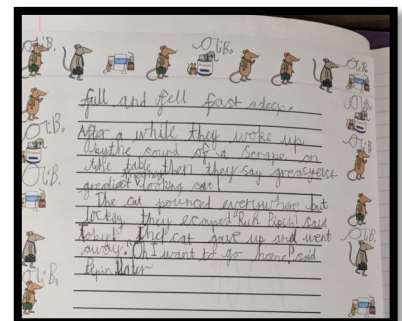 full and fell fast asleep.
After a while they woke up
by the sound of a scrape on
the table then they say greasyest
greatest looking cat!
The cat pounced everywhere but
lockey they ecaped "Run Pipin" said
toby. The cat gave up and went
away. "Oh I want to go home" said
Pipin later